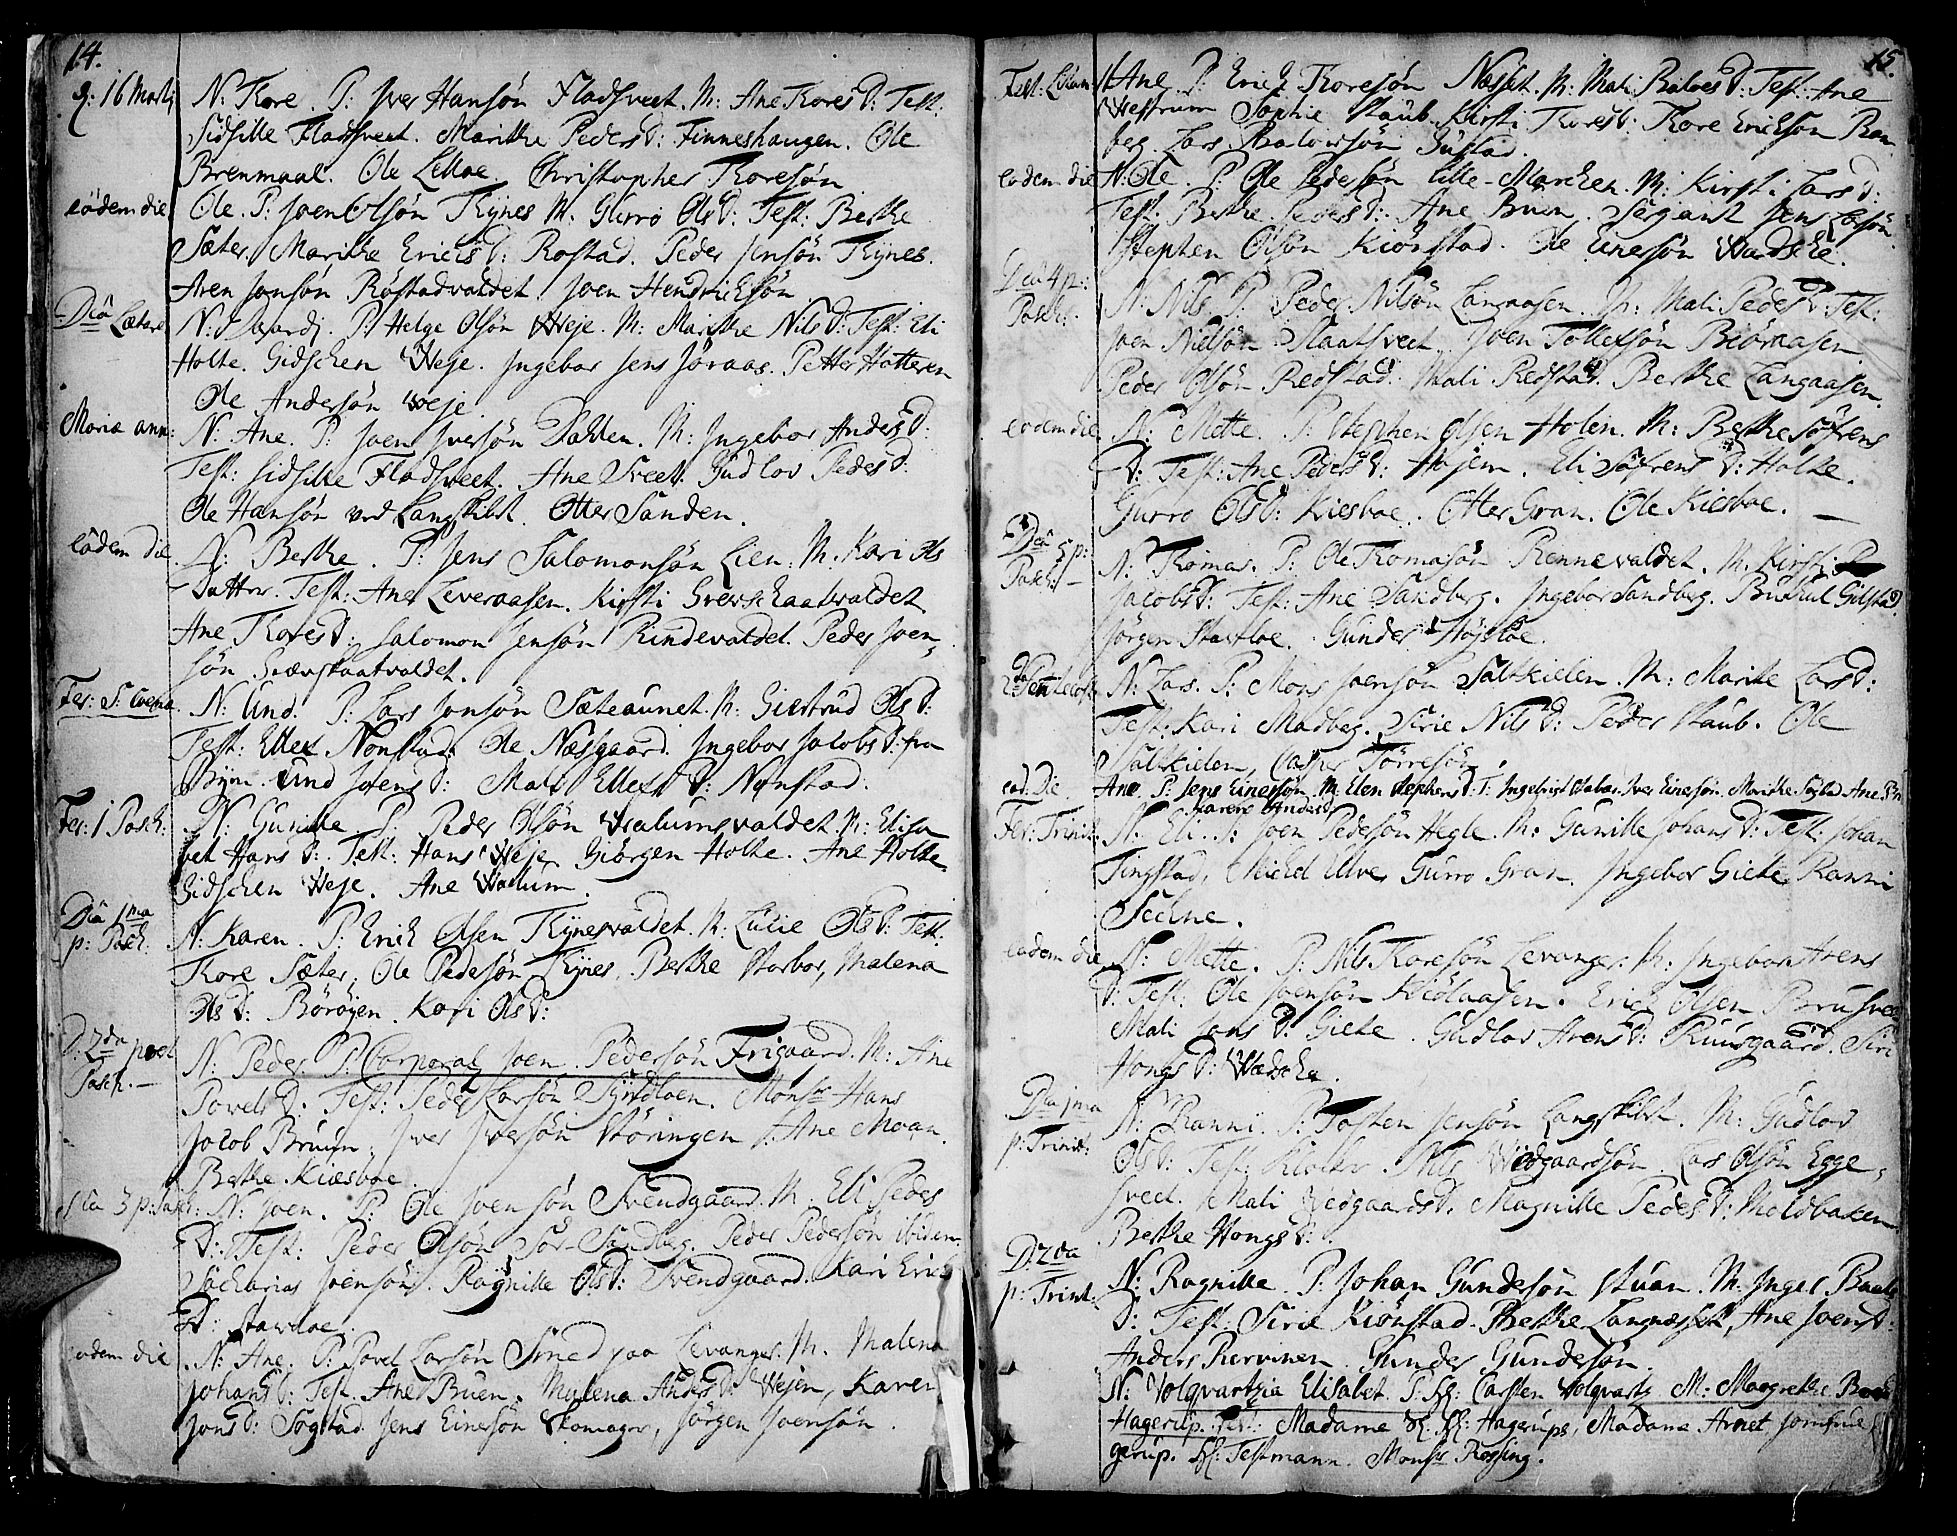 14.
d: 16 Martij N: Tore. P: Iver Hansøn Fladsveet. M: Ane Tores D: Test:
Sidsille Fladsveet. Marithe Peders D: Finneshaugen. Ole
Brenmaal. Ole Lilloe. Christopher Toresøn
eodem die Ole. P: Joen Olsøn Tynes M: Gurro Ols D: Test: Berthe
Sæter. Marithe Erichs D: Rostad. Peder Jensøn Tynes.
Aren Jonsøn Røstadvaldet. Joen Hendrichsøn
Dca Lætare N: P: Helge Olsøn Weje. M: Marithe Nils D: Test: Eli
Holte. Gidschen Weje. Ingebor Jens Jøraas. Petter Hotteren
Ole Andersøn Weje.
Mariæ ann: N: Ane. P: Joen Iversøn Dahlen. M: Ingebor Anders D:
Test: Sidsille Fladsveet. Ane Sveet. Gudlov Peders D:
Ole Hansøn ved Langskibet. Otter Sanden.
eodem die N: Berthe. P: Jens Salomonsøn Lien. M: Kari Ols
Datter. Test: Ane Leveraasen. Kirsti Grevskaatvaldet
Ane Tores D: Salomon Jensøn Rindevaldet. Peder Joen-
søn Grævskaatvaldet.
Fer: S: Coena N: Und. P: Lars Jonsøn Sæteaunet. M: Giertrud Ols D:
Test: Ellef Nonstad. Ole Næsgaard. Ingebor Jacobs D: fra
Byen. Und Jofens D: Mali Ellefs D: Nonstad.
Fer: 1 Pasch: N: Gunille P: Peder Olsøn Walumsvaldet. M: Elisa
bet Hans D: Test: Hans Weje. Giørgen Holte. Ane Holte
Gidschen Weje. Ane Walum.
Dca 1ma p: Pasch. N: Karen. P: Erich Olsen Tynesvaldet. M: Lucie Ols D: Test:
Tore Sæter, Ole Pedesøn Tynes. Berthe Storbor, Malena
Ols D: Børøyen. Kari Ols D:
D: 2da post Pasch. N: Peder P: Corporal Joen Pedersøn Frigaard. M: Ane
Povels D: Test: Peder Larsøn Tyndloen. Monsr Hans
Jacob Bruun, Iver Iversøn Støringen. Ane Moan.
Berthe Kiesboe.
Dca 3 p: Pasch: N: Joen. P: Ole Joensøn Svendgaard. M. Eli Peders
D: Test: Peder Olsøn Sør-Sandberg. Peder Pedersøn ibidem
Zacharias Joensøn. Ragnille Ols D: Svendgaard. Kari Erichs
D: Stavloe.
eodem die N: Ane. P: Povel Larsøn Smed paa Levanger. M. Malena
Johans D: Test. Ane Buen. Malena Anders D: Wejen, Karen
Jons D: Sogstad. Jens Einersøn Skomager, Jørgen Joensøn.
15.
Ane P: Erich Toresøn Næsset. M: Mali Balves D: Test: Ane
Westrum Sophie Staub. Kirsti Tores D: Tore Erichsøn Ram
berg. Lars Gustad.
eodem die N: Ole. P: Ole Pedesøn Lille-Marchen. M: Kirsti Lars D:
Test: Berthe Peders D: Ane Buen. Sergant Jens
Stephen Olsøn Kiønstad. Ole Einersøn
Dca 4 p: Pasch: N: Nils P: Peder Nilsøn Langaasen. M: Mali Peders D: Test:
Joen Nielsøn Slaatsveet. Joen Tollefsøn Biørnaasen
Peder Olsøn Redstad: Mali Redstad. Berthe Langaasen.
eodem die N: Mette. P: Stephen Olsen Holen. M: Berthe Søfrens
D: Test: Ane Peders D: Hojem. Eli Søfrens D: Holte.
Gurro Ols D: Kiesboe. Otter Gran. Ole Kiesboe. —
Dca 5 p: Pasch: N: Thomas. P: Ole Thomasøn Rennevaldet. M. Kirsti
Jacobs D: Test: Ane Sandberg. Ingebor Sandberg. Gilstad
Jørgen Stavloe. Gunder Højsloe.
2da Pentecost: N: Lars. P: Mons Joensøn Saltkielen. M: Marite Lars D:
Test: Kari Madberg. Sirie Nils D: Peder Staub. Ole
Saltkielen, Casper Tørresøn.
eod. Die Ane P: Jens Einersøn, M: Elen Stephens D: T: Ingebrigt Iver Einersøn. Marithe Sogstad Ane
Karen Anders D:
Fer: Trinit: N: Eli. P: Joen Pedersøn Hegle. M: Gunille Johans D: Test: Johan
Tingstad, Michel Ulve, Gurro Gran, Ingebor Giete. Ranni
eodem die N: Mette. P: Nils Toresøn Levanger. M: Ingebor Arens
D: Test: Ole Joensøn Erich Olsen Brusvee
Mali Jons D: Giete. Gudlov Arens D: Ruusgaard. Siri
Hongs D:
Dca 1ma p: Trinit: N: Ranni. P: Tosten Jensøn Langskibet. M: Gudlov
Ols D: Test: Klocker Nils Wedgaardsøn. Lars Olsøn Egge-
sveet. Mali Wedgaards D. Magnille Peders D: Moldbaken
Berthe Hongs D:
D: 2da p: Trinit: N: Ragnille. P: Johan Gundersøn Stuan. M. Ingel
D: Test: Sirie Kiønstad. Berthe Ane Joens D:
Anders Gunder Gundesøn.
N: Volqvartzia Elisabet. P: Hr: Carsten Volqvartz M: Maegrethe
Hagerup. Test: Madame Sl: Hr: Hagerups, Madame Arnet, Jomfrue
gerup. Hr: Testmann. Monsr Rossing.